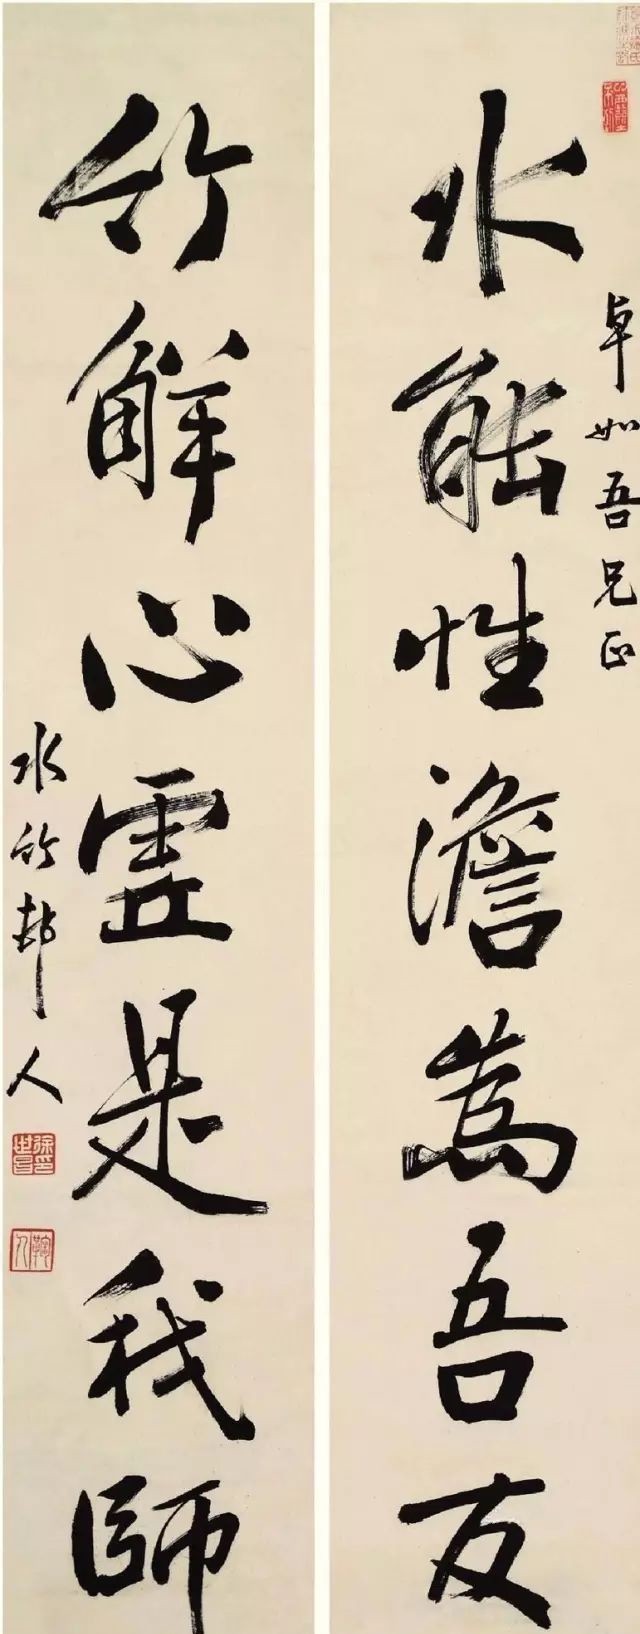 卓如吾兄正
水能性澹為吾友
竹解心靈是我師
水竹邨人
徐世昌印